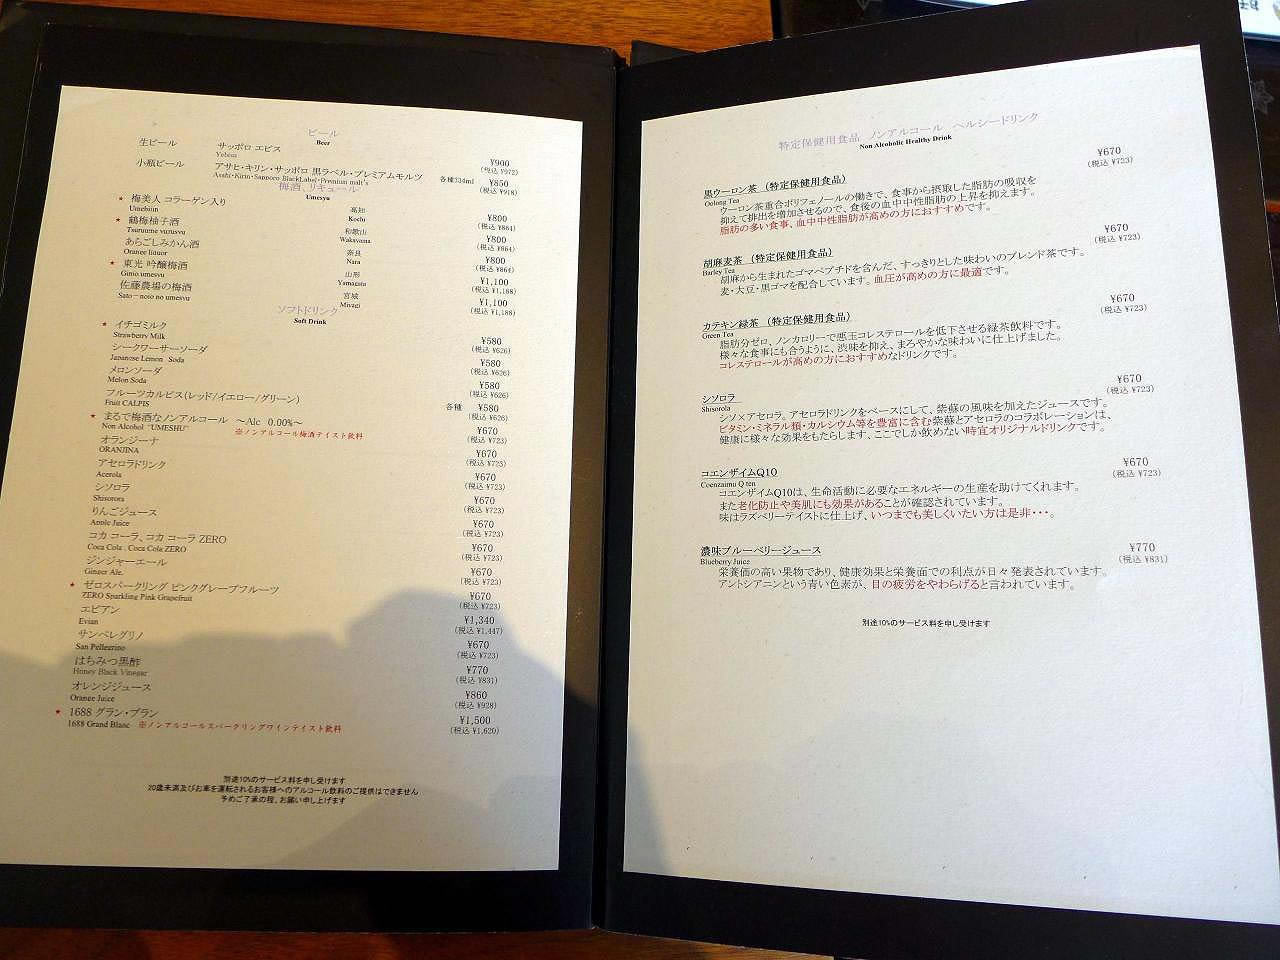 ビール
Beer
生ビール サッポロ エビス ¥900
Yebisu (税込 ¥972)
小瓶ビール アサヒ・キリン・サッポロ 黒ラベル・プレミアムモルツ 各種334ml ¥850
Asahi・Kirin・Sapporo BlackLabel・Premium malt's (税込 ¥918)
梅酒、リキュール
Umesyu
★ 梅美人 コラーゲン入り 高知 ¥800
Umebiiin Kochi (税込 ¥864)
★ 鶴梅柚子酒 和歌山 ¥800
Tsuruume yuzusyu Wakayama (税込 ¥864)
あらごしみかん酒 奈良 ¥800
Orange liquor Nara (税込 ¥864)
★ 東光 吟醸梅酒 山形 ¥1,100
Ginjo umesyu Yamagata (税込 ¥1,188)
佐藤農場の梅酒 宮城 ¥1,100
Sato-nojo no umesyu Miyagi (税込 ¥1,188)
ソフトドリンク
Soft Drink
★ イチゴミルク ¥580
Strawberry Milk (税込 ¥626)
シークワーサーソーダ ¥580
Japanese Lemon Soda (税込 ¥626)
メロンソーダ ¥580
Melon Soda (税込 ¥626)
フルーツカルピス(レッド/イエロー/グリーン) 各種 ¥580
Fruit CALPIS (税込 ¥626)
★ まるで梅酒なノンアルコール ～Alc 0.00%～ ¥670
Non Alcohol "UMESHU" ※ノンアルコール梅酒テイスト飲料 (税込 ¥723)
オランジーナ ¥670
ORANJINA (税込 ¥723)
アセロラドリンク ¥670
Acerola (税込 ¥723)
シソロラ ¥670
Shisorora (税込 ¥723)
りんごジュース ¥670
Apple Juice (税込 ¥723)
コカ コーラ、コカ コーラ ZERO ¥670
Coca Cola . Coca Cola ZERO (税込 ¥723)
ジンジャーエール ¥670
Ginger Ale. (税込 ¥723)
★ ゼロスパークリング ピンクグレープフルーツ ¥670
ZERO Sparkling Pink Grapefruit (税込 ¥723)
エビアン ¥1,340
Evian (税込 ¥1,447)
サンペレグリノ ¥670
San Pellegrino (税込 ¥723)
はちみつ黒酢 ¥770
Honey Black Vinegar (税込 ¥831)
オレンジジュース ¥860
Orange Juice (税込 ¥928)
★ 1688 グラン・ブラン ¥1,500
1688 Grand Blanc ※ノンアルコールスパークリングワインテイスト飲料 (税込 ¥1,620)
別途10%のサービス料を申し受けます
20歳未満及びお車を運転されるお客様へのアルコール飲料のご提供はできません
予めご了承の程、お願い申し上げます
特定保健用食品 ノンアルコール ヘルシードリンク
Non Alcoholic Healthy Drink
黒ウーロン茶 (特定保健用食品) ¥670
Oolong Tea (税込 ¥723)
ウーロン茶重合ポリフェノールの働きで、食事から摂取した脂肪の吸収を
抑えて排出を増加させるので、食後の血中中性脂肪の上昇を抑えます。
脂肪の多い食事、血中中性脂肪が高めの方におすすめです。
胡麻麦茶 (特定保健用食品) ¥670
Barley Tea (税込 ¥723)
胡麻から生まれたゴマペプチドを含んだ、すっきりとした味わいのブレンド茶です。
麦・大豆・黒ゴマを配合しています。血圧が高めの方に最適です。
カテキン緑茶 (特定保健用食品) ¥670
Green Tea (税込 ¥723)
脂肪分ゼロ、ノンカロリーで悪玉コレステロールを低下させる緑茶飲料です。
様々な食事にも合うように、渋味を抑え、まろやかな味わいに仕上げました。
コレステロールが高めの方におすすめなドリンクです。
シソロラ ¥670
Shisorola (税込 ¥723)
シソ×アセロラ。アセロラドリンクをベースにして、紫蘇の風味を加えたジュースです。
ビタミン・ミネラル類・カルシウム等を豊富に含む紫蘇とアセロラのコラボレーションは、
健康に様々な効果をもたらします。ここでしか飲めない時宜オリジナルドリンクです。
コエンザイムQ10 ¥670
Coenzaimu Q ten (税込 ¥723)
コエンザイムQ10は、生命活動に必要なエネルギーの生産を助けてくれます。
また老化防止や美肌にも効果があることが確認されています。
味はラズベリーテイストに仕上げ、いつまでも美しくいたい方は是非・・・。
濃味ブルーベリージュース ¥770
Blueberry Juice (税込 ¥831)
栄養価の高い果物であり、健康効果と栄養面での利点が日々発表されています。
アントシアニンという青い色素が、目の疲労をやわらげると言われています。
別途10%のサービス料を申し受けます